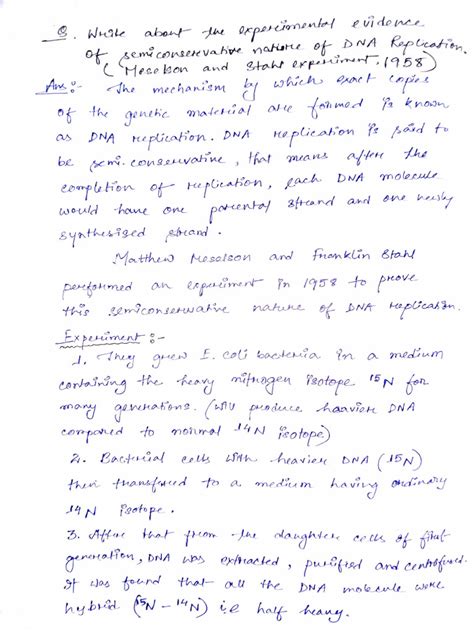 Q. Write about the experimental evidence
of semiconservative nature of DNA Replication.
( Meselson and Stahl experiment, 1958)
Ans :- The mechanism by which exact copies
of the genetic material are formed is known
as DNA replication. DNA replication is said to
be semi-conservative, that means after the
completion of replication, each DNA molecule
would have one parental strand and one newly
synthesised strand.
Matthew Meselson and Franklin Stahl
performed an experiment in 1958 to prove
this semiconservative nature of DNA replication.
Experiment :-
1. They grew E. coli bacteria in a medium
containing the heavy nitrogen isotope 15N for
many generations. (will produce heavier DNA
compared to normal 14N isotope)
2. Bacterial cells with heavier DNA (15N)
then transfured to a medium having ordinary
14N isotope.
3. After that from the daughter cells of first
generation, DNA was extracted, purified and centrifused.
It was found that all the DNA molecule were
hybrid (15N - 14N) i.e half heavy.